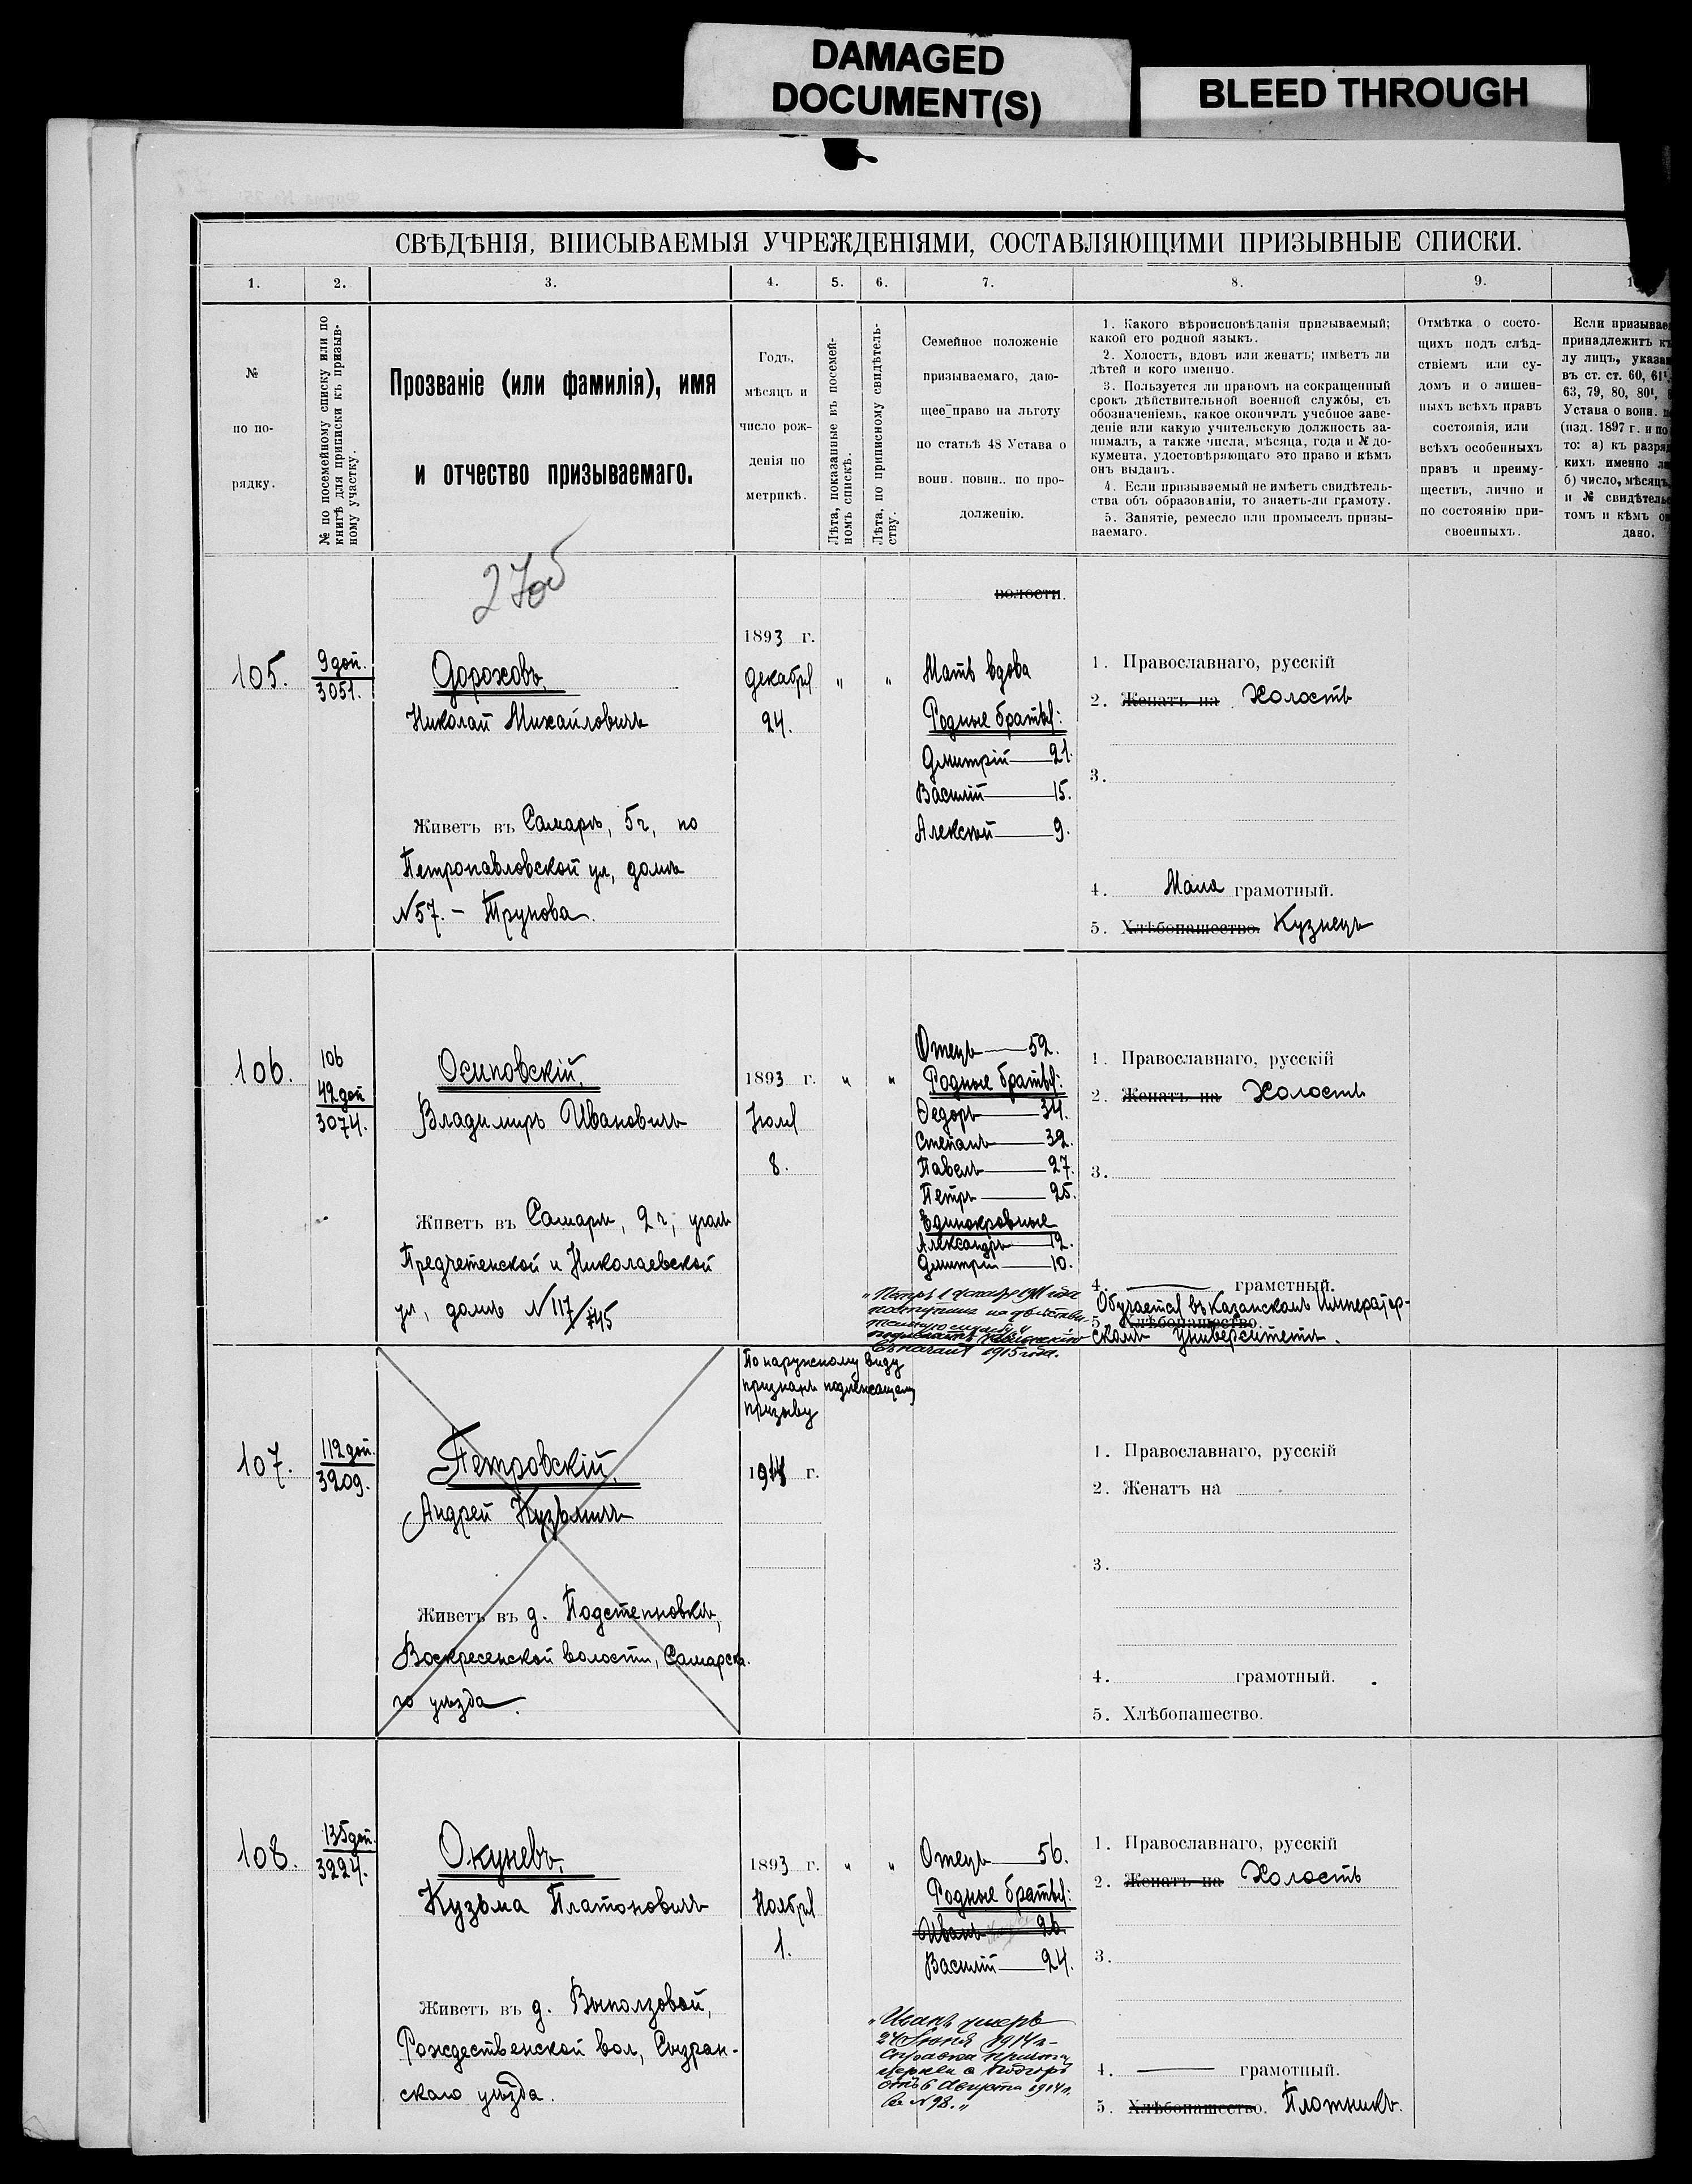 DAMAGED
DOCUMENT(S)
BLEED THROUGH
СВѢДѢНІЯ, ВПИСЫВАЕМЫЯ УЧРЕЖДЕНІЯМИ, СОСТАВЛЯЮЩИМИ ПРИЗЫВНЫЕ СПИСКИ.
1. 2. 3. 4. 5. 6. 7. 8. 9.
№
по по-
рядку.
№ по посемейному списку или по
книгѣ для приписки къ призыв-
ному участку.
Прозваніе (или фамилія), имя
и отчество призываемаго.
Годъ,
мѣсяцъ и
число рож-
денія по
метрикѣ.
Лѣта, показанные въ посемей-
номъ спискѣ.
Лѣта, по приписному свидѣтель-
ству.
Семейное положеніе
призываемаго, даю-
щее право на льготу
по статьѣ 48 Устава о
воин. повин.. по про-
долженію.
1. Какого вѣроисповѣданія призываемый;
какой его родной языкъ.
2. Холостъ, вдовъ или женатъ; имѣетъ ли
дѣтей и кого именно.
3. Пользуется ли правомъ на сокращенный
срокъ дѣйствительной военной службы, съ
обозначеніемъ, какое окончилъ учебное заве-
деніе или какую учительскую должность за-
нималъ, а также числа, мѣсяца, года и № до-
кумента, удостовѣряющаго это право и кѣмъ
онъ выданъ.
4. Если призываемый не имѣетъ свидѣтель-
ства объ образованіи, то знаетъ-ли грамоту.
5. Занятіе, ремесло или промыселъ призы-
ваемаго.
Отмѣтка о состо-
щихъ подъ слѣд-
ствіемъ или су-
домъ и о лишен-
ныхъ всѣхъ правъ
состоянія, или
всѣхъ особенныхъ
правъ и преиму-
ществъ, лично и
по состоянію при-
своенныхъ.
Если призывае
принадлежитъ к
лу лицъ, указа
въ ст. ст. 60, 61¹,
63, 79, 80, 80¹,
Устава о воин.
(изд. 1897 г. и по
то: а) къ разря
кихъ именно
б) число, мѣсяцъ,
и № свидѣтель
томъ и кѣмъ
дано.
волости.
105.
9 доп.
3051.
Дороховъ,
Николай Михайловичъ
Живетъ въ Самарѣ, 5 ч, по
Петропавловской ул, домъ
№ 57. – Трунова.
1893 г.
Декабря
24.
" "
Мать вдова
Родные братья:
Дмитрій — 21.
Василій — 15.
Алексѣй — 9.
1. Православнаго, русскій
2. Женатъ на Холостъ
3.
4. Мало грамотный.
5. Хлѣбопашество. Кузнецъ
106.
106
42 доп
3074.
Осиповскій,
Владимиръ Ивановичъ
Живетъ въ Самарѣ, 2 ч, уголъ
Предтеченской и Николаевской
ул, домъ № 117/145
1893 г.
Іюля
8.
" "
Отецъ — 52.
Родные братья:
Ѳедоръ — 34.
Степанъ — 32.
Павелъ — 27.
Петръ — 25.
Единокровные
Александръ — 12.
Дмитрій — 10.
1. Православнаго, русскій
2. Женатъ на Холостъ
3.
4. — грамотный.
Обучается въ Казанскомъ Император-
5. Хлѣбопашество.
скомъ Университетѣ.
107.
112 доп.
3209.
Петровскій,
Андрей Кузьмичъ
Живетъ въ д. Подстепновкѣ,
Воскресенской волости, Самарска-
го уѣзда.
По наружному виду
признанъ подлежащему
призыву
г.
1. Православнаго, русскій
2. Женатъ на
3.
4. грамотный.
5. Хлѣбопашество.
108.
135 доп.
3224.
Окуневъ,
Кузьма Платоновичъ
Живетъ въ д. Выползовой,
Рождественской вол, Сызран-
скаго уѣзда.
1893 г.
Ноября
1.
" "
Отецъ — 56.
Родные братья:
Иванъ — 26.
Василій — 24.
"Иванъ умеръ
1914 г.
Августа 1914 г.
за № 98."
1. Православнаго, русскій
2. Женатъ на Холостъ
3.
4. — грамотный.
5. Хлѣбопашество. Плотникъ.